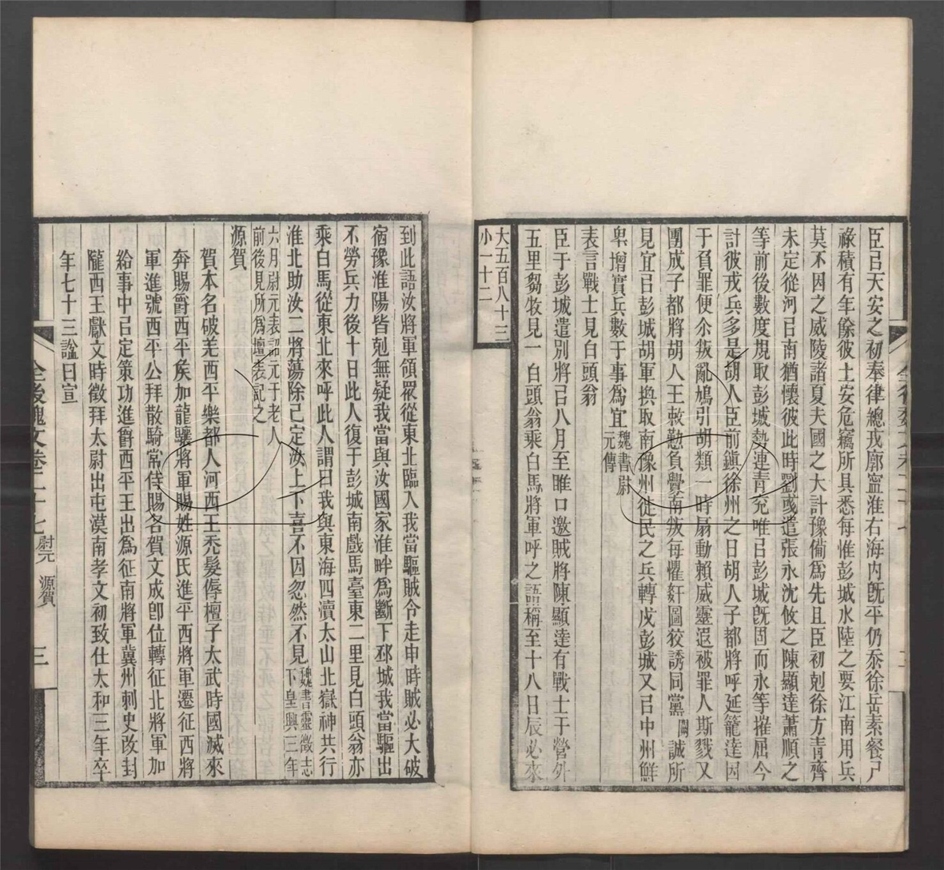 臣㠯天安之初奉律總戎廓寧淮右海内旣平仍忝徐岳素餐尸
祿積有年餘彼土安危竊所具悉每惟彭城水陸之要江南用兵
莫不因之威陵諸夏夫國之大計豫備爲先且臣初剋徐方青齊
未定從河㠯南猶懷彼此時劉彧遣張永沈攸之陳顯達蕭順之
等前後數度規取彭城勢連青兗唯㠯彭城旣固而永等摧屈今
計彼戎兵多是胡人臣前鎭徐州之日胡人子都將呼延籠達因
于負罪便尒叛亂鳩引胡類一時扇動賴威靈遐被罪人斯戮又
團成子都將胡人王敕懃負釁南叛每懼姧圖狡誘同黨闕誠所
見宜㠯彭城胡軍換取南豫州徙民之兵轉戍彭城又㠯中州鮮
卑增實兵數于事爲宜魏書尉元傳
表言戰士見白頭翁
臣于彭城遣别將㠯八月至睢口邀賊將陳顯達有戰士于營外
五里芻牧見一白頭翁乘白馬將軍呼之語稱至十八日辰必來
大五百八十三
小一十二
到此語汝將軍領眾從東北臨入我當驅賊令走申時賊必大破
宿豫淮陽皆剋無疑我當與汝國家淮畔爲斷下邳城我當驅出
不勞兵力後十日此人復于彭城南戲馬臺東二里見白頭翁亦
乘白馬從東北來呼此人謂曰我與東海四瀆太山北嶽神共行
淮北助汝二將蕩除已定汝上下喜不因忽然不見魏書靈徵志下皇興三年
六月尉元表詔元于老人
前後見所爲壇表記之
源賀
賀本名破羌西平樂都人河西王禿髮傉檀子太武時國滅來
奔賜爵西平矦加龍驤將軍賜姓源氏進平西將軍遷征西將
軍進號西平公拜散騎常侍賜名賀文成卽位轉征北將軍加
給事中㠯定策功進爵西平王出爲征南將軍冀州刺史改封
隴西王獻文時徵拜太尉出屯漠南孝文初致仕太和三年卒
年七十三諡曰宣
全後魏文卷二十七 尉元 源賀 三